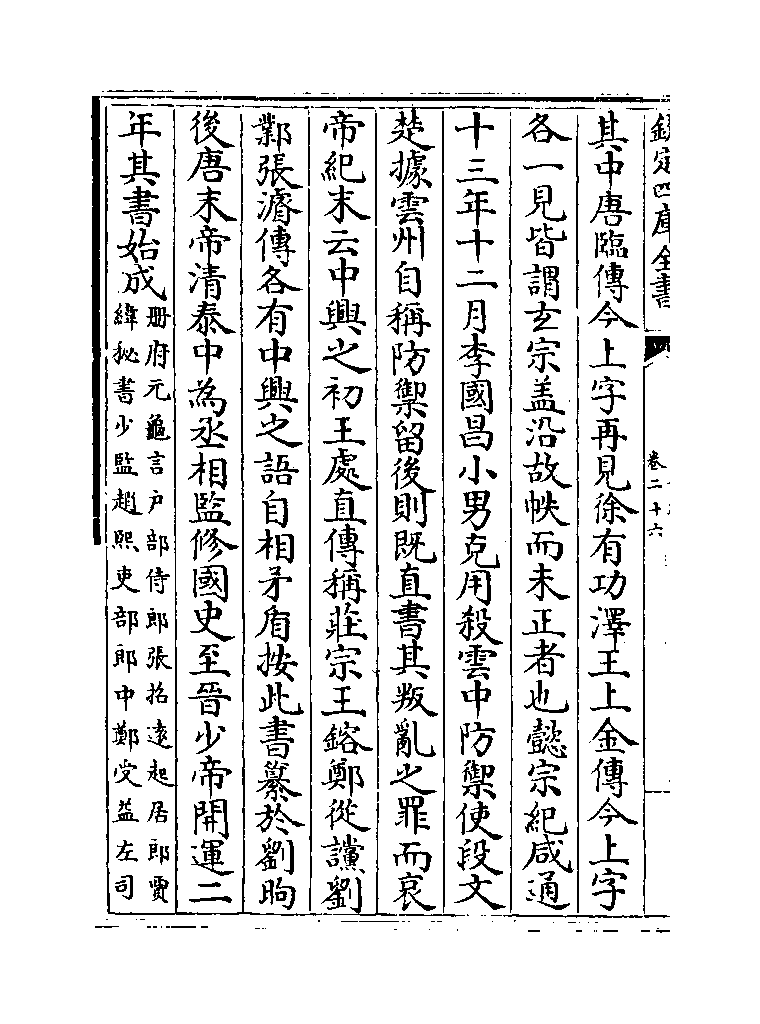 欽定四庫全書
卷二十六
其中唐臨傳今上字再見徐有功澤王上金傳今上字
各一見皆謂玄宗盖沿故帙而未正者也懿宗紀咸通
十三年十二月李國昌小男克用殺雲中防禦使段文
楚據雲州自稱防禦留後則既直書其叛亂之罪而哀
帝紀末云中興之初王處直傳稱莊宗王鎔鄭從讜劉
鄴張濬傳各有中興之語自相矛盾按此書纂於劉昫
後唐末帝清泰中為丞相監修國史至晉少帝開運二
年其書始成
册府元龜言户部侍郎張昭遠起居郎賈
緯秘書少監趙熙吏部郎中鄭受益左司